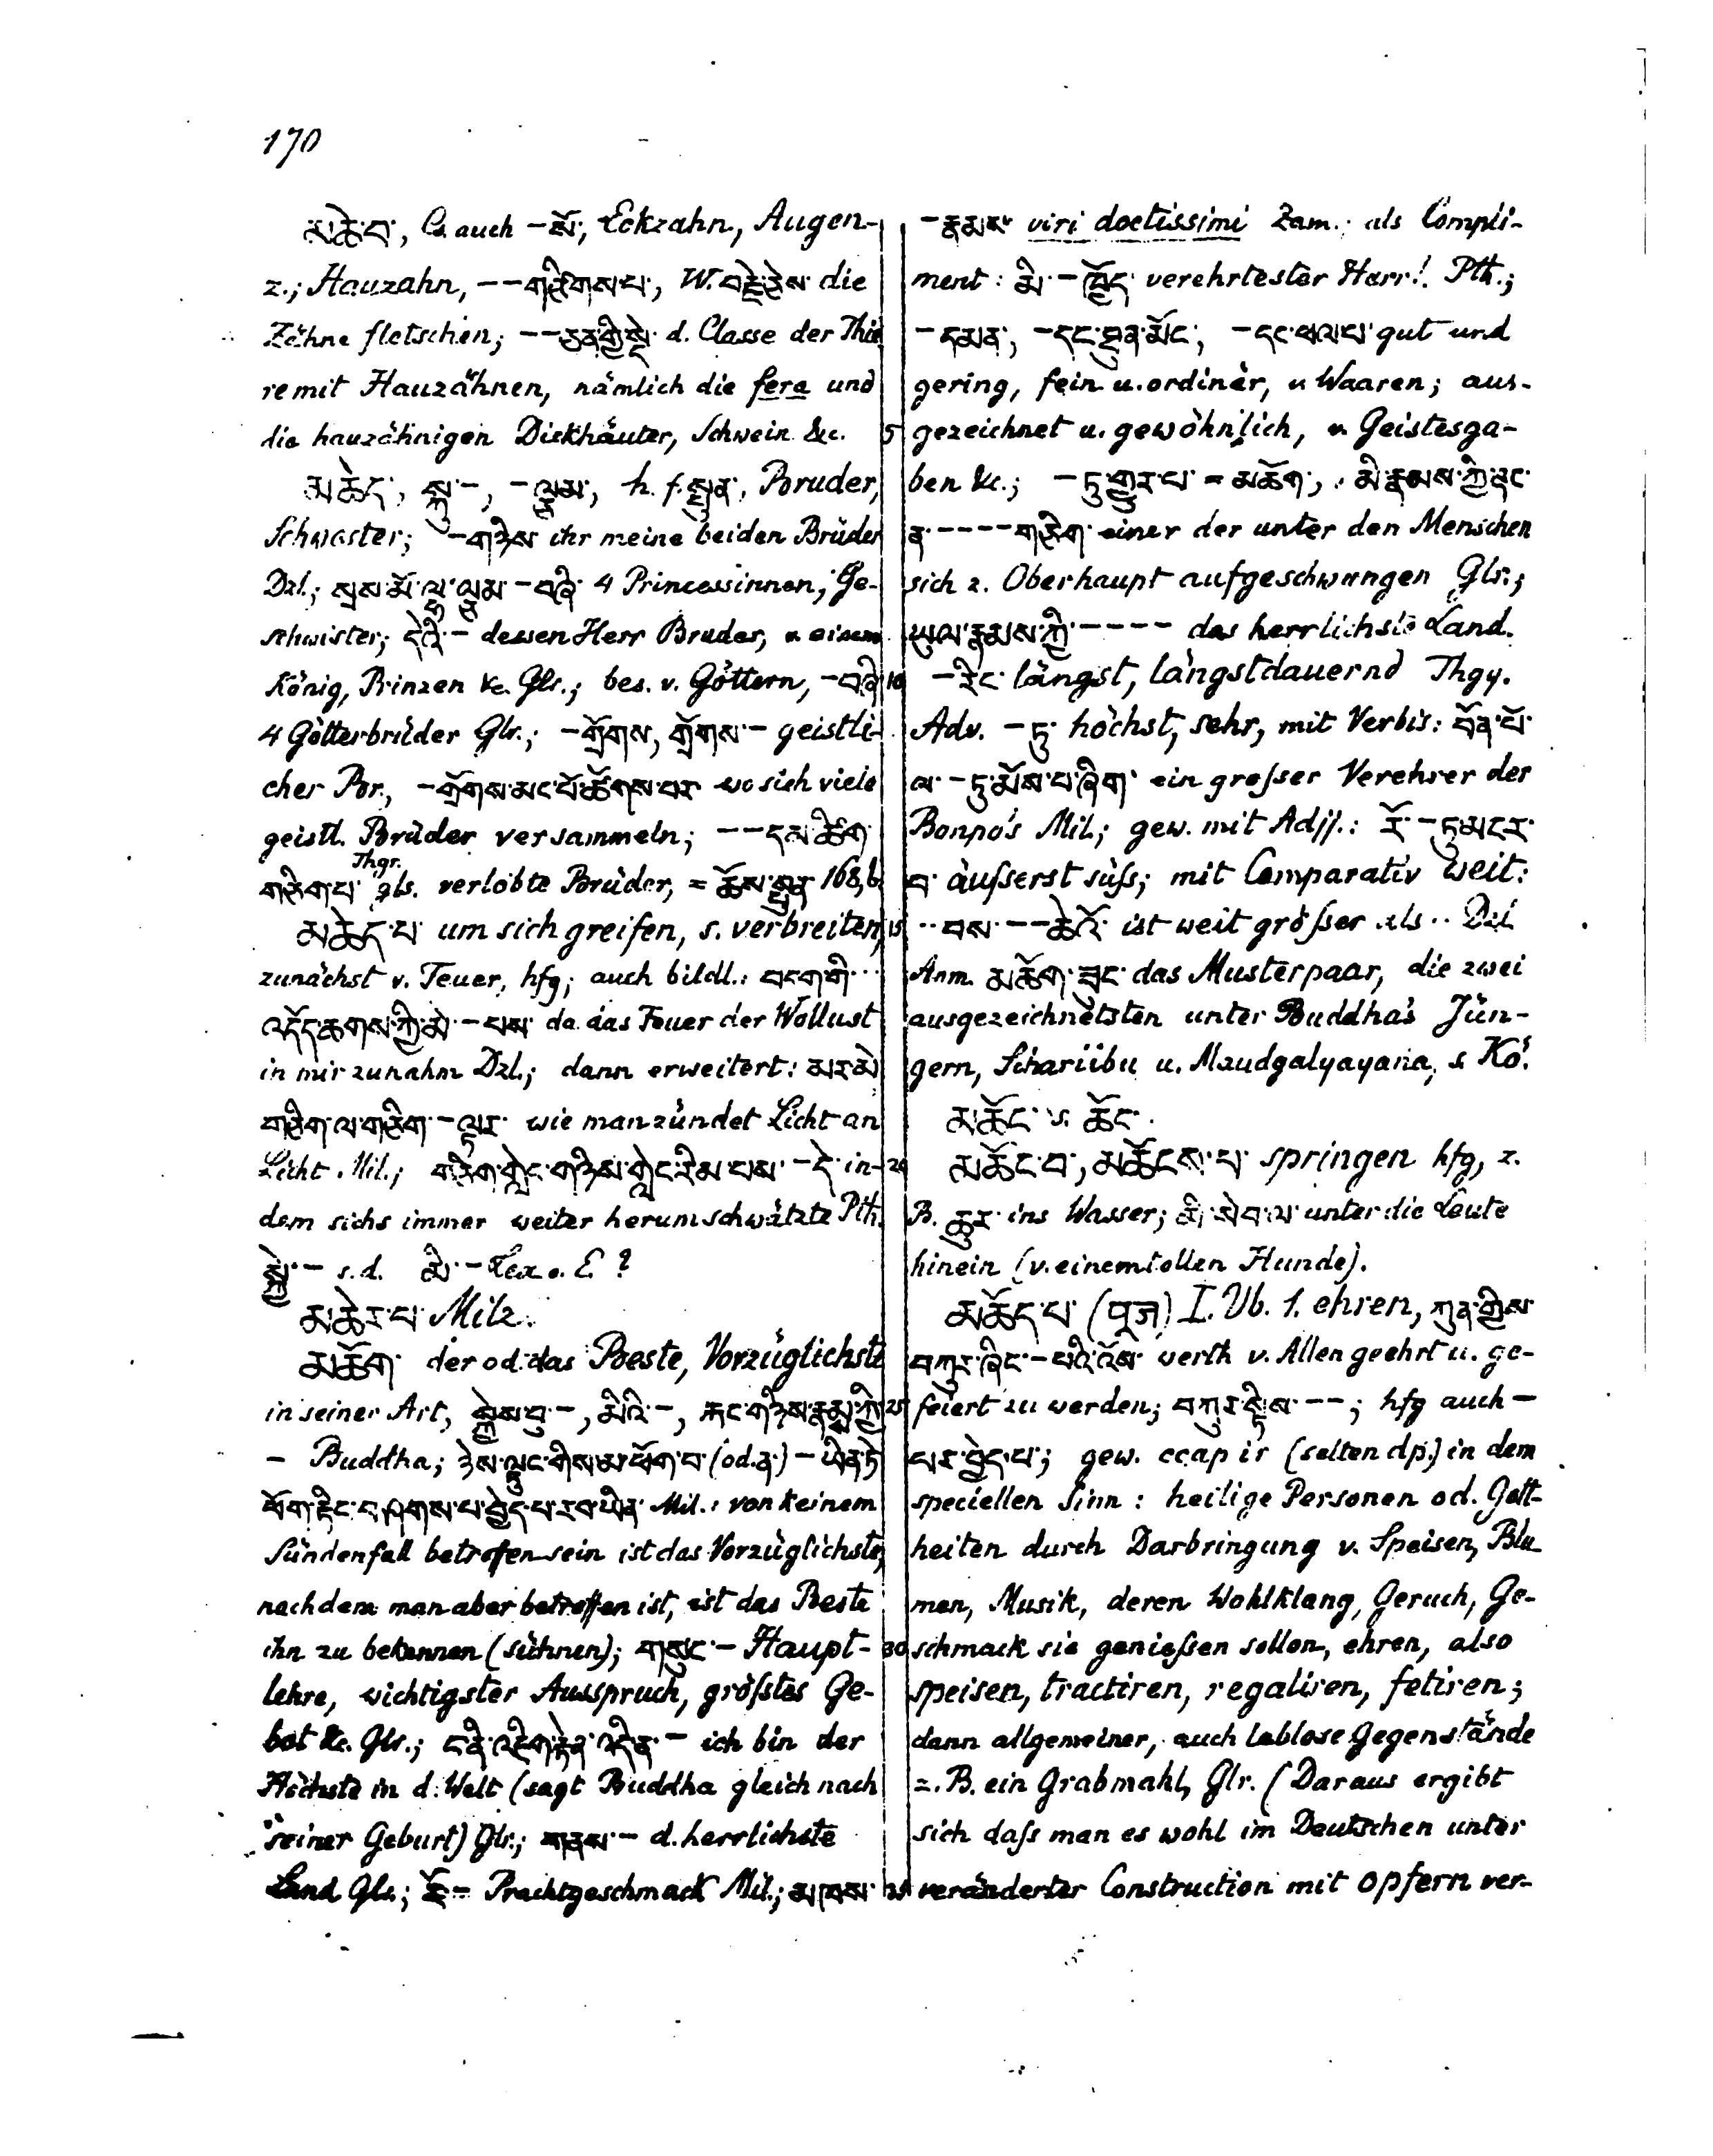 170
མཆེ་བ་, Cs. auch -མོ་, Eckzahn, Augen-
z.; Hauzahn, --གཙིགས་པ་, W. བརྫེ་ die
Zähne fletschen; --ཅན་གྱི་སྡེ་ d. Classe der Thie
re mit Hauzähnen, nämlich die fera und
die hauzähnigen Dickhäuter, Schwein &c. 5
མཆེད་, སྐུ་-, -ལྕམ་, h. f. སྤུན་, Bruder,
Schwester; -གཉིས་ ihr meine beiden Brüder
Dzl.; སྲས་མོ་ལྷ་ལྕམ་-བཞི་ 4 Princessinnen, Ge-
schwister; དེའི་- dessen Herr Bruder, v. einem
König, Prinzen &c. Glr.; bes. v. Göttern, -བཞི་ 10
4 Götterbrüder Glr.; -གྲོགས, གྲོགས་- geistli-
cher Br., -གྲོགས་མང་པོ་ཚོགས་པར་ wo sich viele
geistl. Brüder versammeln; --དམ་ཚིག་
གཅིག་པ་ Thgr. gls. verlobte Brüder, = ཆོས་སྤུན་ 168,b.
མཆེད་པ་ um sich greifen, s. verbreiten, 15
zunächst v. Feuer, hfg; auch bildl.: བདག་གི་..
འདོད་ཆགས་ཀྱི་མེ་-པས་ da das Feuer der Wollust
in mir zunahm Dzl.; dann erweitert: མར་མེ་
གཅིག་ལ་གཅིག་-ལྟར་ wie man zündet Licht an
Licht Mil.; གཅིག་གླེང་གཉིས་གླེང་རིམ་པས་-དེ་ in- 20
dem sichs immer weiter herumschwätzte Pth.
སྐྱེ་- s. d. མི་- Lex. o. E. ?
མཆེར་པ་ Milz.
མཆོག་ der od. das Beste, Vorzüglichste
in seiner Art, སྐྱེས་བུ་-, མིའི་-, རྐང་གཉིས་རྣམས་ཀྱི་ 25
- Buddha; ཉེས་ལྟུང་གིས་མ་ཕོག་པ་ (od. ན་) -ཡིན་ཏེ་
ཕོག་ཏིང་ བཤགས་པ་བྱེད་པ་རབ་ཡིན་ Mil.: von keinem
Sündenfall betroffen sein ist das Vorzüglichste,
nachdem man aber betroffen ist, ist das Beste
ihn zu bekennen (sühnen); གསུང་- Haupt- 30
lehre, wichtigster Ausspruch, größtes Ge-
bot &c. Glr.; ང་ནི་འཇིག་རྟེན་འདིན་- ich bin der
Höchste in d. Welt (sagt Buddha gleich nach
seiner Geburt) Glr.; གནས་- d. herrlichste
Land Glr.; རོ་- Prachtgeschmack Mil.; མཁས་ 35
-རྣམས་ viri doctissimi Zam.; als Compli-
ment: མི་-ཁྱོད་ verehrtester Herr! Pth.;
-དམན་, -དང་ཐུན་མོང་, -དང་ཕལ་པ་ gut und
gering, fein u. ordinär, v. Waaren; aus-
gezeichnet u. gewöhnlich, v. Geistesga-
ben &c.; -ཏུ་གྱུར་པ་ = མཆོག་, མི་རྣམས་ཀྱི་ནང་
ན་----གཅིག་ einer der unter den Menschen
sich z. Oberhaupt aufgeschwungen Glr.;
ཡུལ་རྣམས་ཀྱི་---- das herrlichste Land.
-རིང་ längst, längstdauernd Thgy.
Adv. -ཏུ་ höchst, sehr, mit Verbis: བོན་པོ་
ལ་-ཏུ་མོས་པ་ཞིག་ ein großer Verehrer der
Bonpo's Mil.; gew. mit Adjj.: རོ་-ཏུ་མངར་
བ་ äußerst süß; mit Comparativ weit:
..བས་--ཆེའོ་ ist weit größer als .. Dzl
Anm. མཆོག་ཟུང་ das Musterpaar, die zwei
ausgezeichnetsten unter Buddha's Jün-
gern, Schariibu u. Maudgalyayana, s. Kö.
མཆོང་ s. ཆོང་.
མཆོང་བ་, མཆོངས་པ་ springen hfg, z.
B. ཆུར་ ins Wasser; མི་སེབ་ལ་ unter die Leute
hinein (v. einem tollen Hunde).
མཆོད་པ་ (पूज) I. Vb. 1. ehren, ཀུན་གྱིས་
བཀུར་ཞིང་-པའི་འོས་ werth v. Allen geehrt u. ge-
feiert zu werden; བཀུར་སྟིས་--; hfg auch -
པར་བྱེད་པ་; gew. ccapir (selten dp.) in dem
speciellen Sinn: heilige Personen od. Gott-
heiten durch Darbringung v. Speisen, Blu-
men, Musik, deren Wohlklang, Geruch, Ge-
schmack sie genießen sollen, ehren, also
speisen, tractiren, regaliren, fetiren;
dann allgemeiner, auch leblose Gegenstände
z. B. ein Grabmahl, Glr. (Daraus ergibt
sich daß man es wohl im Deutschen unter
veränderter Construction mit opfern ver-